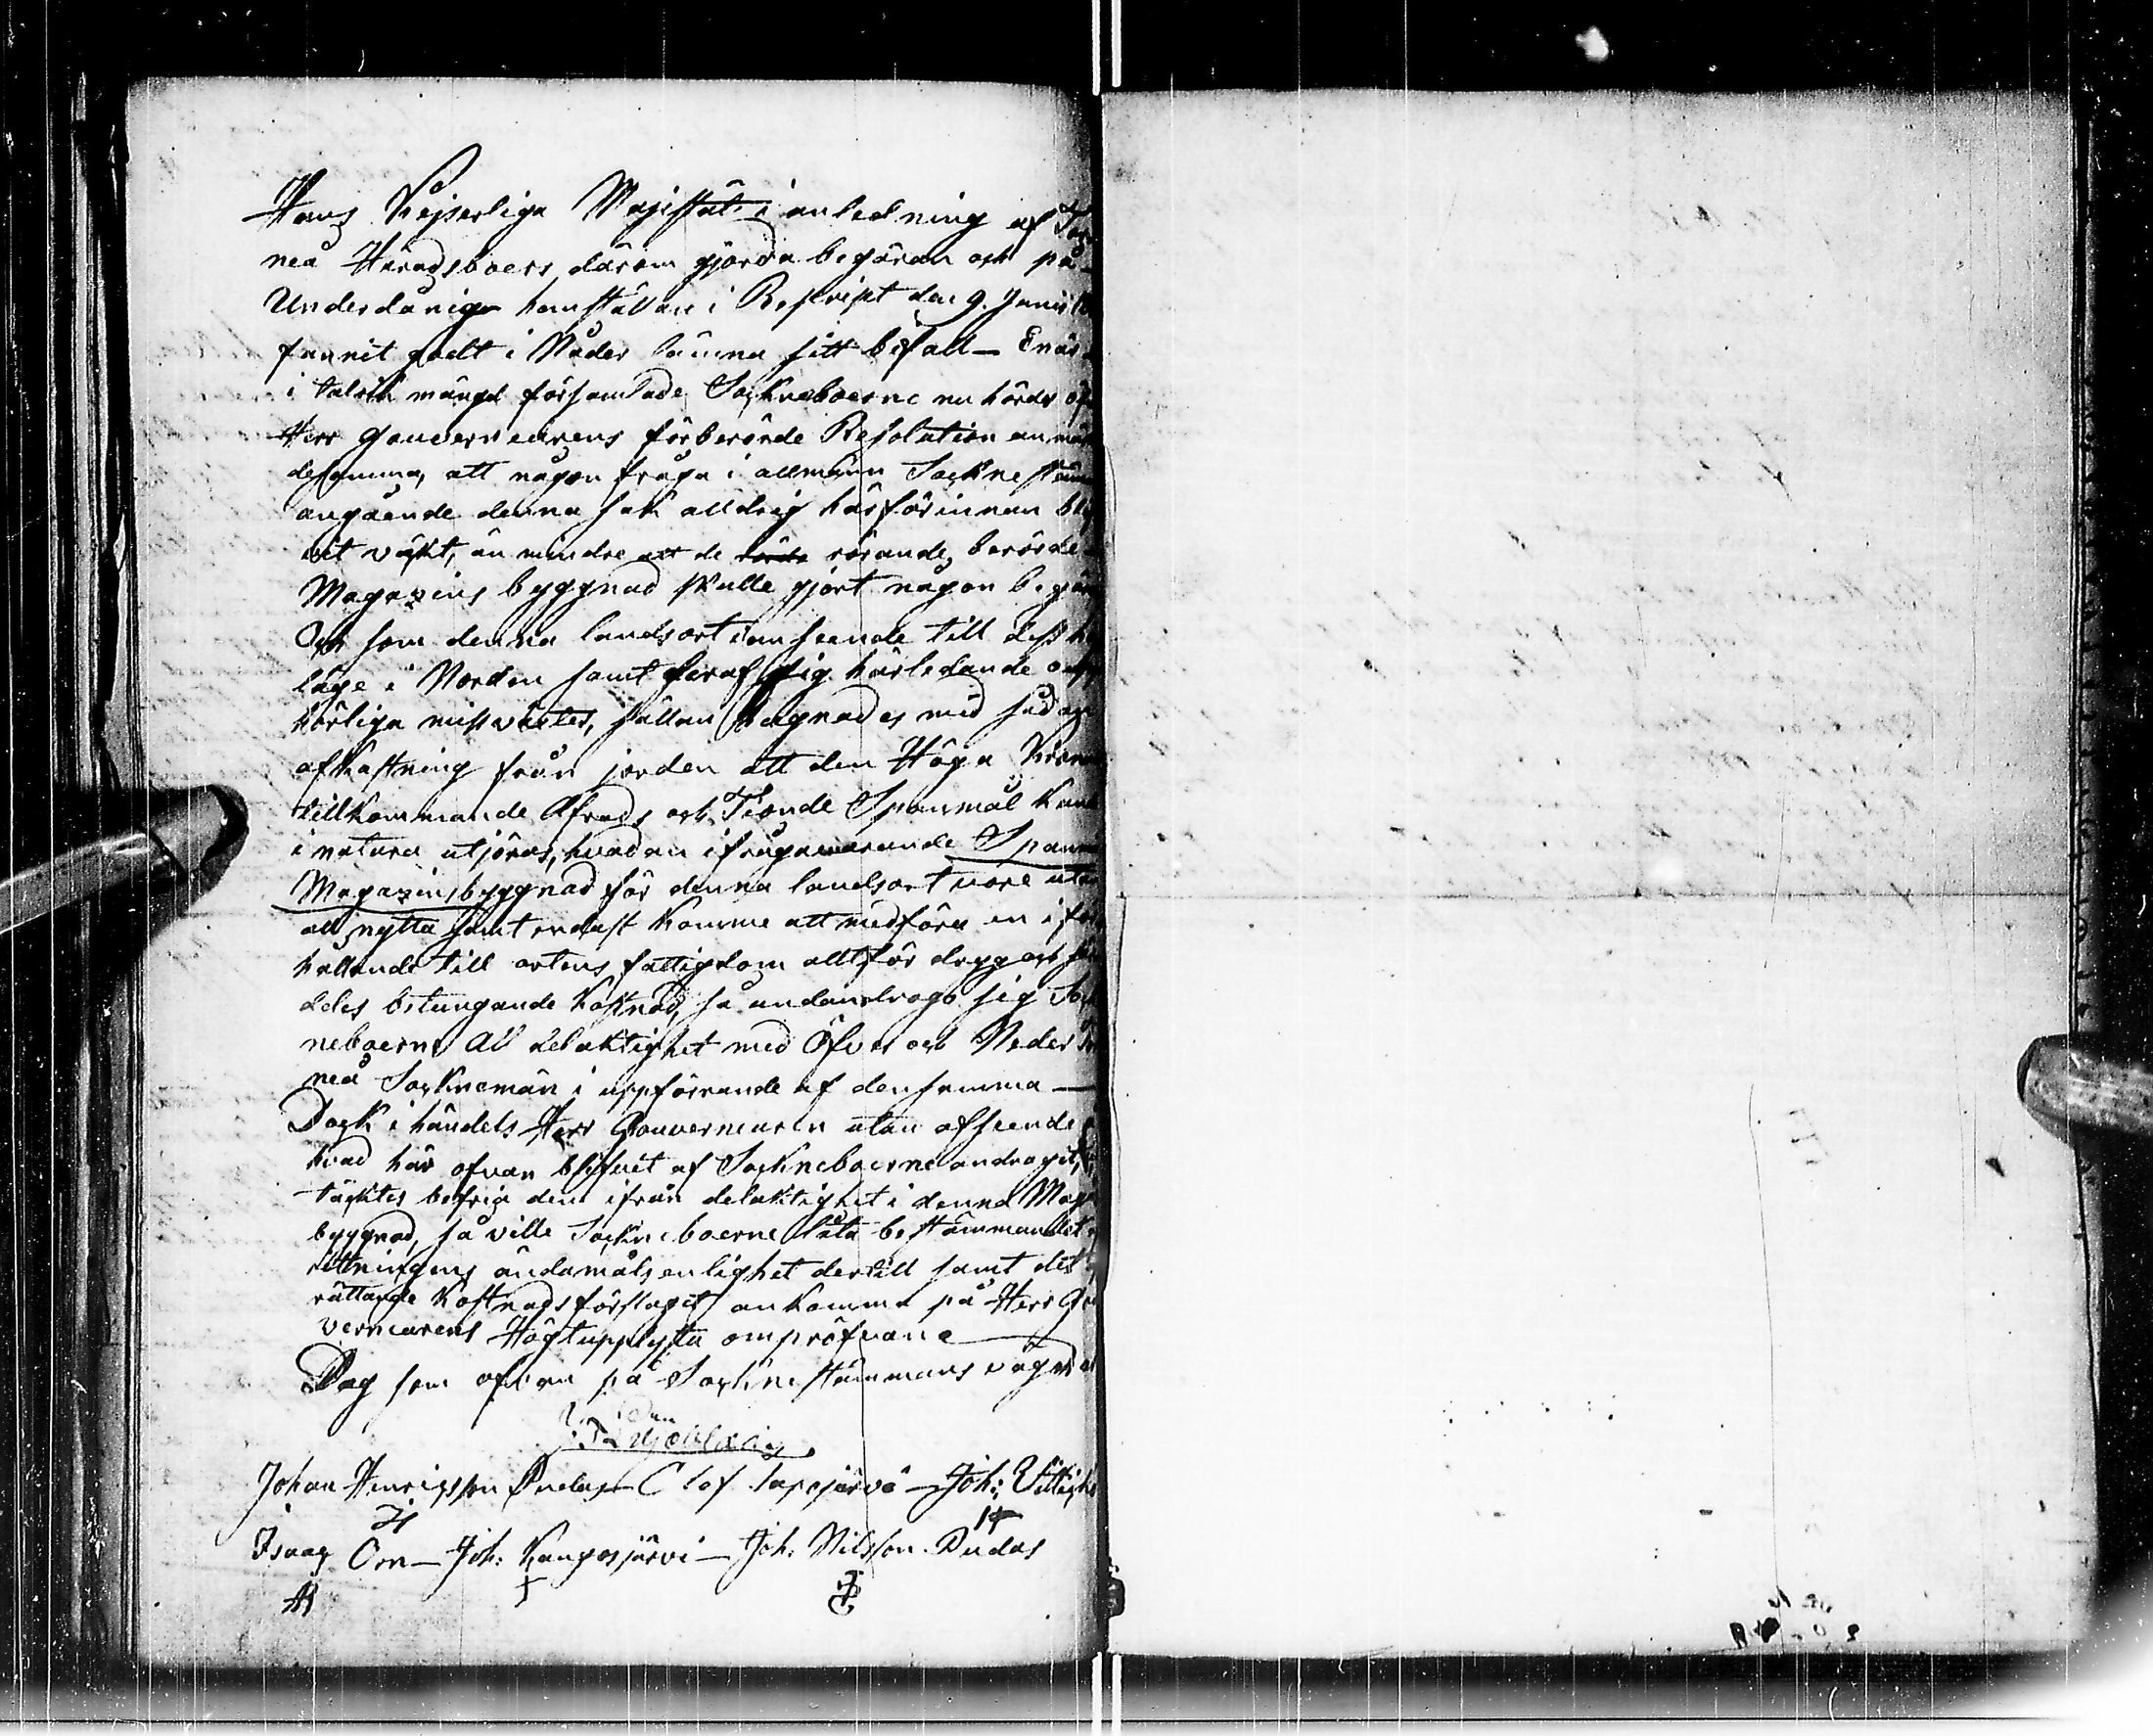 Hans Kejserliga Majistät i anledning af Tor
neå Häradsboers därom gjorda begäran och på
Underdånig hemställan i Rescript den 9. Junii
funnit godt i Nåder lämna sitt bifall — Enär
i talrik mängd församlade Sockneboerne nu hörde
Herr Gouverneurens förberörde Resolution anmäl
desamma, att någon fråga i allmänn Sockne stäm
angående denna sak alldrig härförinnan bli
vit väckt, än mindre att de rörande berörde
Magazins byggnad skulle gjort någon begär
Och som denna landsort i anseende till dess
läge i Norden samt deraf sig härledande
körliga missväxter, sällan hugnades med sådan
afkastning från jorden att den Höga Kronan
tillkommande Afrads och Tionde Spanmål kan
i natura utjöras, hvadan ifrågavarande Spanm
Magazinsbyggnad för denna landsort vore utan
all nytta samt endast komme att medföra en i för
hållande till ortens fattigdom alltför dryg och
deles betungande kostnad, så undandrogo sig Sock
neboerne all delaktighet med Öfver och Neder Tor
neå Socknemän i uppförande af densamma —
Dock i händels Herr Gouverneuren utan afseende
hvad här ofvan blifvit af Sockneboerne andragit,
täcktes befria dem ifrån delaktighet i denna Mag
byggnad, så ville Sockneboerne låta bestämmandet
rättningens ändamålsenlighet dertill samt det
rättande kostnadsförslaget ankomma på Herr Gou
verneurens Högtupplysta ompröfvane
Dag som ofvan på Socknestämmans vägnar
Johan Henricsson Rudas — Olof Lapojärvi — Joh:
Isaac Orn — Joh: Kangosjärvi — Joh: Nilsson Rudas